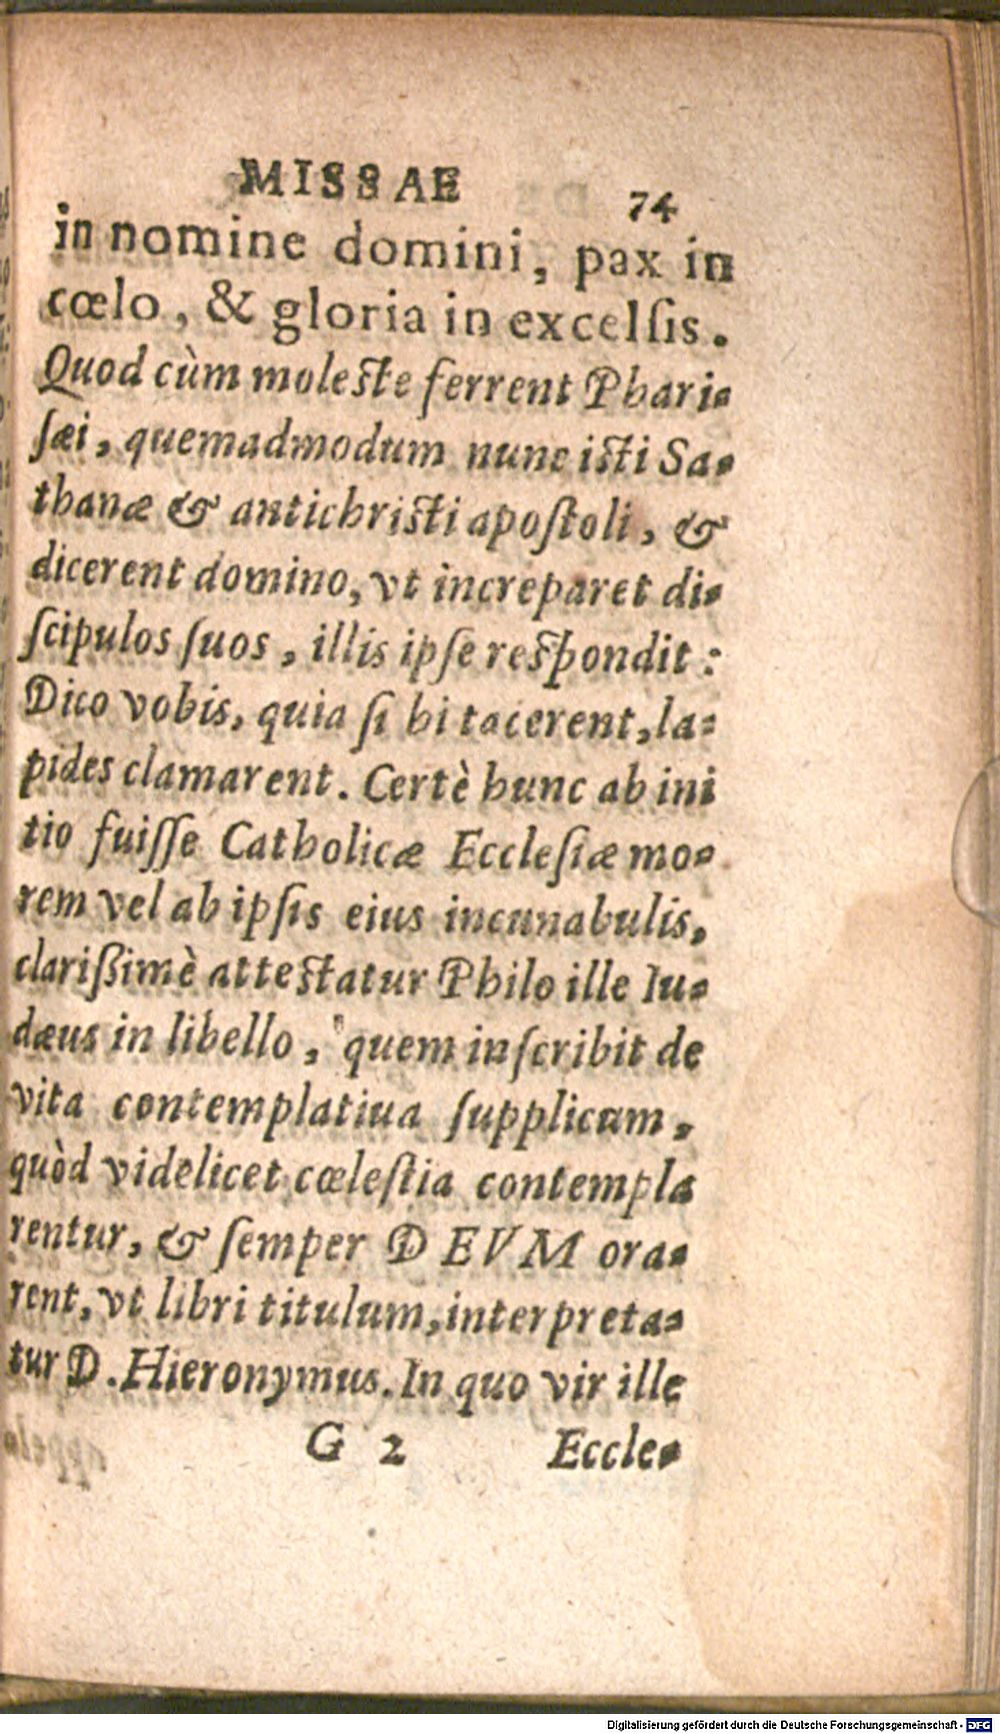 MISSAE 74
in nomine domini, pax in
cœlo, & gloria in excelſis.
Quod cùm moleſte ferrent Phari-
ſæi, quemadmodum nunc iſti Sa-
thanæ & antichriſti apoſtoli, &
dicerent domino, vt increparet di-
ſcipulos ſuos, illis ipſe reſpondit:
Dico vobis, quia ſi hi tacerent, la-
pides clamarent. Certè hunc ab ini
tio fuiſſe Catholicæ Eccleſiæ mo-
rem vel ab ipſis eius incunabulis,
clarißimè atteſtatur Philo ille Iu-
dæus in libello, quem inſcribit de
vita contemplatiua ſupplicum,
quòd videlicet cœleſtia contempla
rentur, & ſemper DEVM ora-
rent, vt libri titulum, interpreta-
tur D. Hieronymus. In quo vir ille
G 2 Eccle-
Digitalisierung gefördert durch die Deutsche Forschungsgemeinschaft - DFG